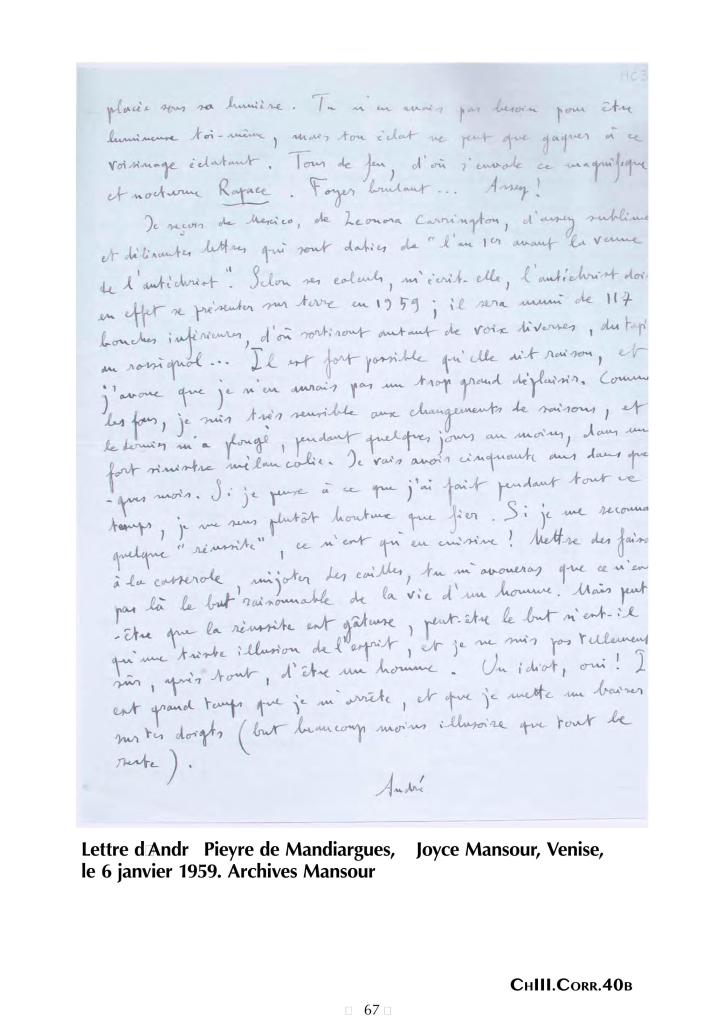 MC3
placée sous sa lumière. Tu n'en avais pas besoin pour être
lumineuse toi-même, mais ton éclat ne peut que gagner à ce
voisinage éclatant. Tour de feu, d'où s'envole ce magnifique
et nocturne Rapace. Foyer brulant... Assez!
Je reçois de Mexico, de Leonora Carrington, d'assez sublimes
et délirantes lettres qui sont datées de "l'an 1er avant la venue
de l'antéchrist". Selon ses calculs, m'écrit-elle, l'antéchrist doi
en effet se présenter sur terre en 1959; il sera muni de 117
bouches inférieures, d'où sortiront autant de voix diverses, du tapi
au rossignol... Il est fort possible qu'elle ait raison, et
j'avoue que je n'en aurais pas un trop grand déplaisir. Comme
les fous, je suis très sensible aux changements de saisons, et
le dernier m'a plongé, pendant quelques jours au moins, dans une
fort sinistre mélancolie. Je vais avoir cinquante ans dans quel
-ques mois. Si je pense à ce que j'ai fait pendant tout ce
temps, je me sens plutôt honteux que fier. Si je me reconna
quelque "réussite", ce n'est qu'en cuisine! Mettre des faisa
à la casserole, mijoter des cailles, tu m'avoueras que ce n'est
pas là le but raisonnable de la vie d'un homme. Mais peut
-être que la réussite est gâteuse, peut-être le but n'est-il
qu'une triste illusion de l'esprit, et je ne suis pas tellement
sûr, après tout, d'être un homme. Un idiot, oui! I
est grand temps que je m'arrête, et que je mette un baiser
sur tes doigts (but beaucoup moins illusoire que tout le
reste).
André
Lettre d'Andr Pieyre de Mandiargues, Joyce Mansour, Venise,
le 6 janvier 1959. Archives Mansour
CHIII.CORR.40B
67